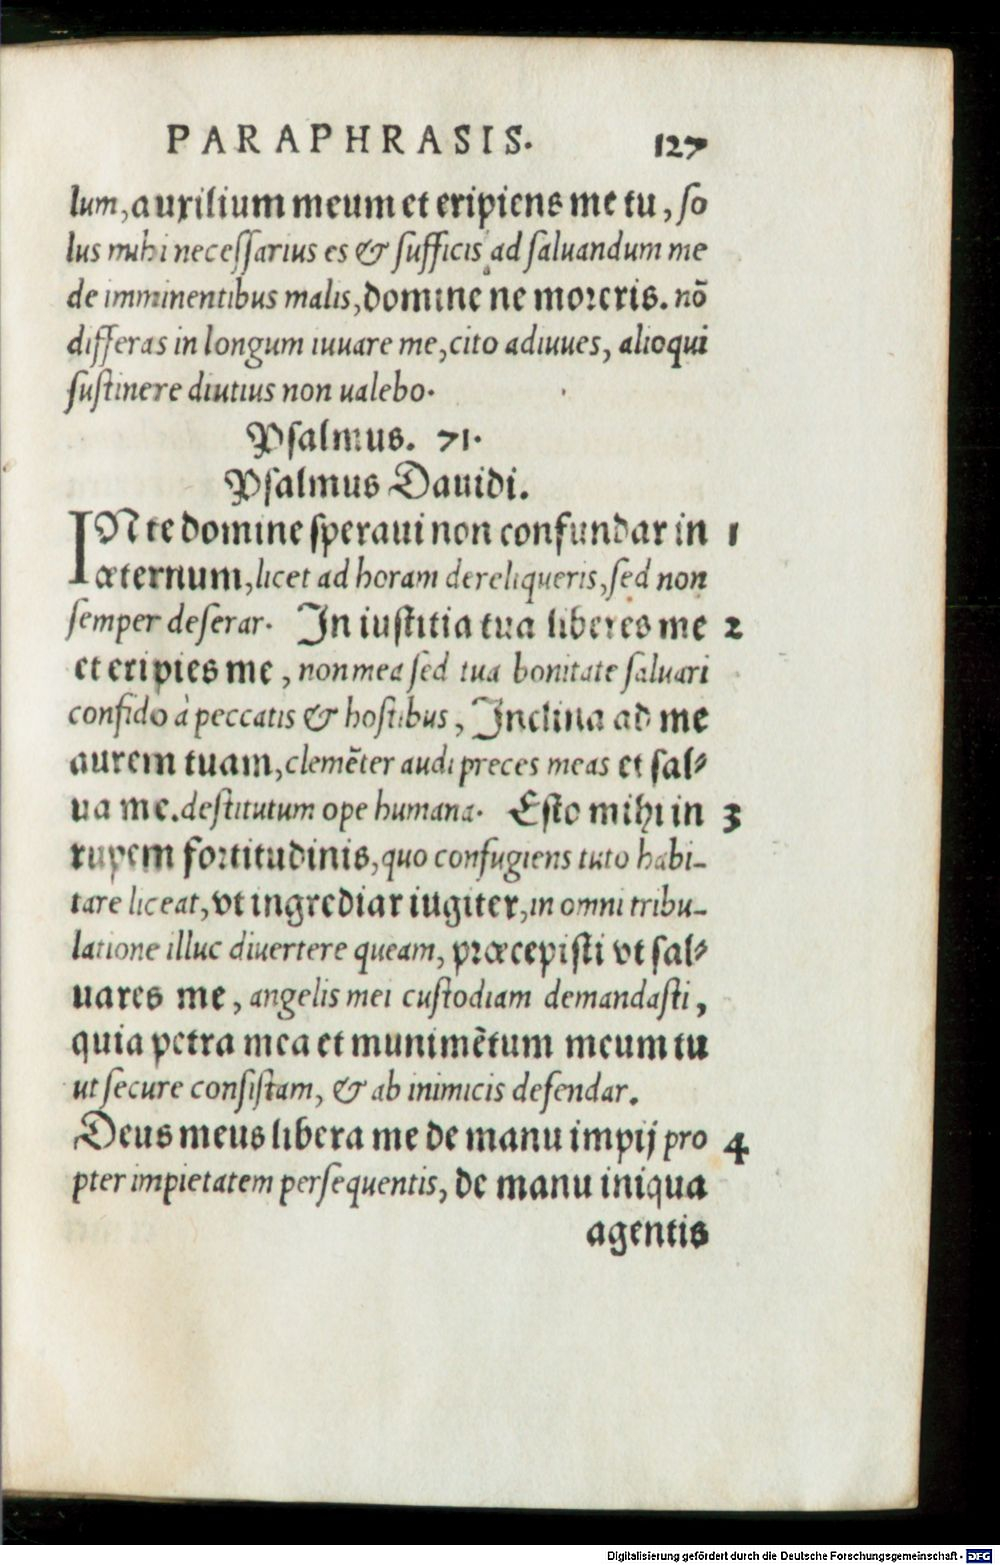 PARAPHRASIS. 127
lum, auxilium meum et eripiens me tu, so
lus mihi necessarius es & sufficis ad saluandum me
de imminentibus malis, domine ne moreris. nõ
differas in longum iuuare me, cito adiuues, alioqui
sustinere diutius non ualebo.
Psalmus. 71.
Psalmus Dauidi.
IN te domine speraui non confundar in 1
æternum, licet ad horam dereliqueris, sed non
semper deserar. In iustitia tua liberes me 2
et eripies me, non mea sed tua bonitate saluari
confido à peccatis & hostibus, Inclina ad me
aurem tuam, clemẽter audi preces meas et sal⸗
ua me. destitutum ope humana. Esto mihi in 3
rupem fortitudinis, quo confugiens tuto habi-
tare liceat, vt ingrediar iugiter, in omni tribu-
latione illuc diuertere queam, præcepisti vt sal⸗
uares me, angelis mei custodiam demandasti,
quia petra mea et munimẽtum meum tu
ut secure consistam, & ab inimicis defendar.
Deus meus libera me de manu impij pro 4
pter impietatem persequentis, de manu iniqua
agentis
Digitalisierung gefördert durch die Deutsche Forschungsgemeinschaft - DFG